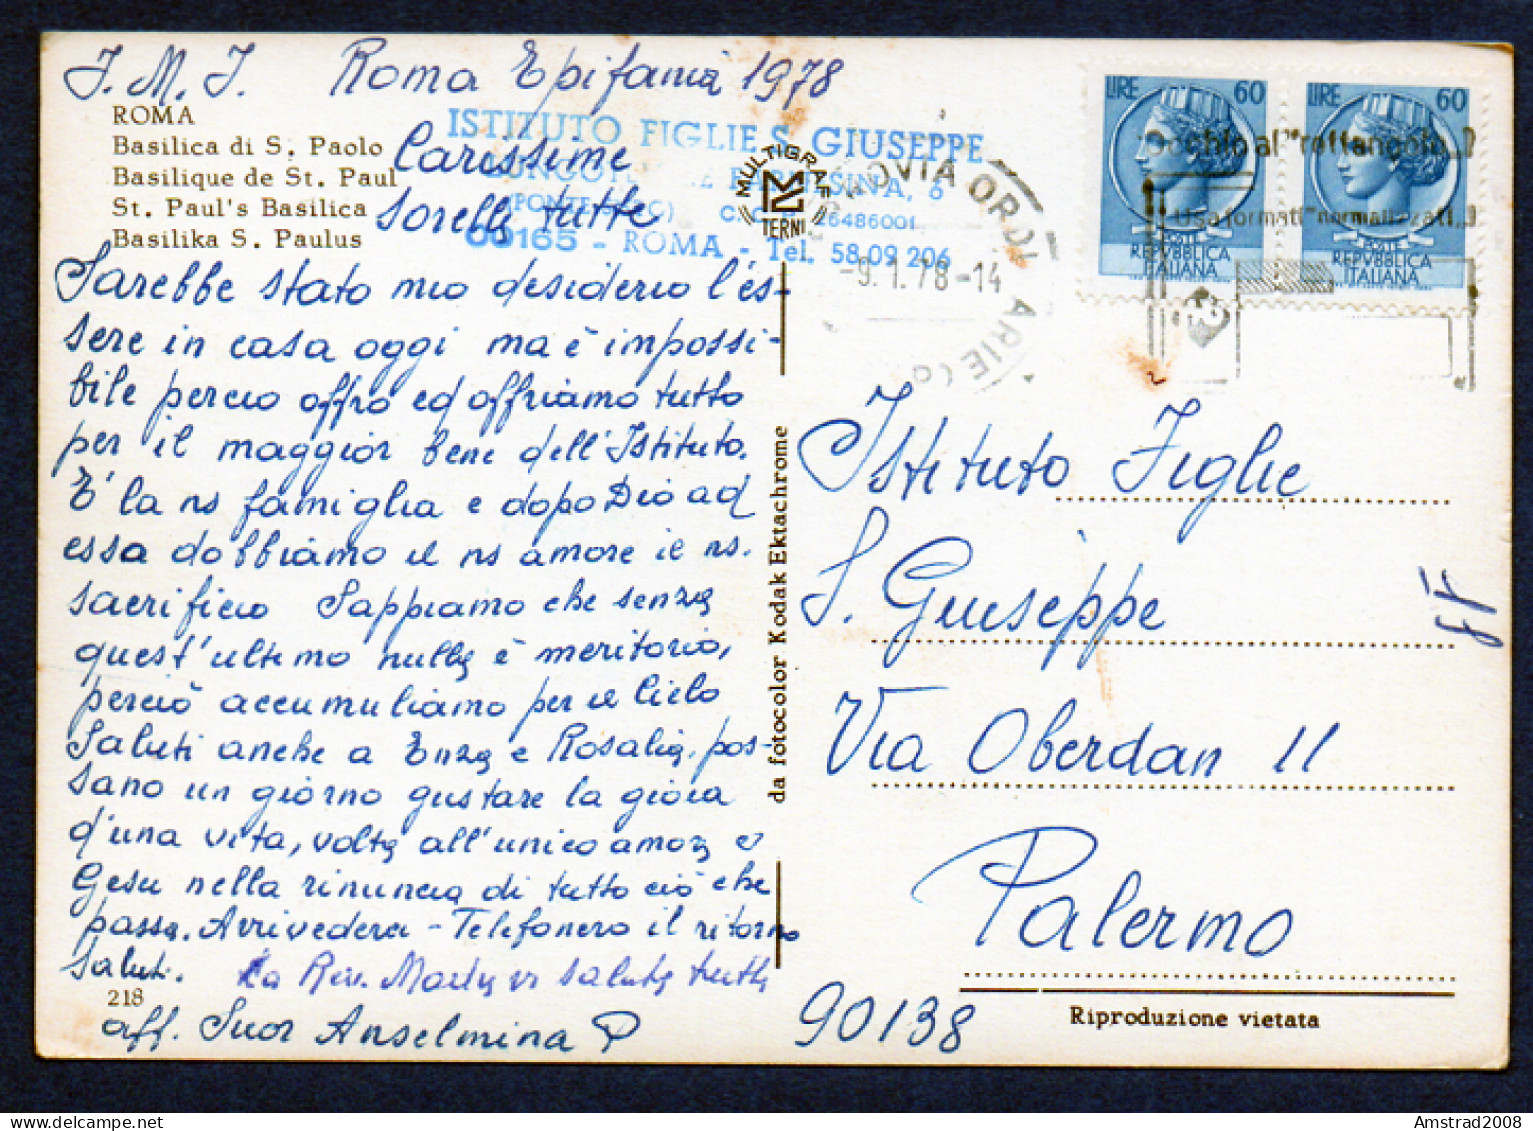 J. M. J. Roma Epifania 1978
ROMA
Basilica di S. Paolo
Basilique de St. Paul
St. Paul's Basilica
Basilika S. Paulus
ISTITUTO FIGLIE S. GIUSEPPE
6
00165 - ROMA - Tel. 58.09 206
Carissime
sorelle tutte
Sarebbe stato mio desiderio l'es-
sere in casa oggi ma è impossi-
bile perciò offro ed offriamo tutto
per il maggior bene dell'Istituto.
E' la ns famiglia e dopo Dio ad
essa dobbiamo il ns amore il ns.
sacrificio Sappiamo che senza
quest'ultimo nulla è meritorio,
perciò accumuliamo per il Cielo
Saluti anche a Enza e Rosalia, pos-
sano un giorno gustare la gioia
d'una vita, volta all'unico amore
Gesù nella rinuncia di tutto ciò che
passa. Arrivederci - Telefonerò il ritorno
Saluti. La Rev. Madre vi saluta tutte
218
aff. Suor Anselmina P
MULTIGRAF
TERNI
da fotocolor Kodak Ektachrome
-9.1.78-14
LIRE 60
POSTE
REPVBBLICA
ITALIANA
LIRE 60
POSTE
REPVBBLICA
ITALIANA
Occhio al "rettangolo"..?
Usa formati "normalizzati"..!
Istituto Figlie
S. Giuseppe
Via Oberdan 11
Palermo
90138
Riproduzione vietata
Amstrad2008